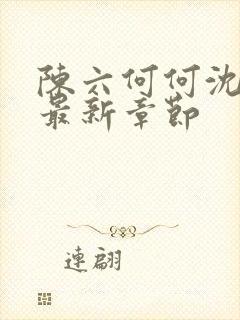 陳六何何沈
最新章節
連翩